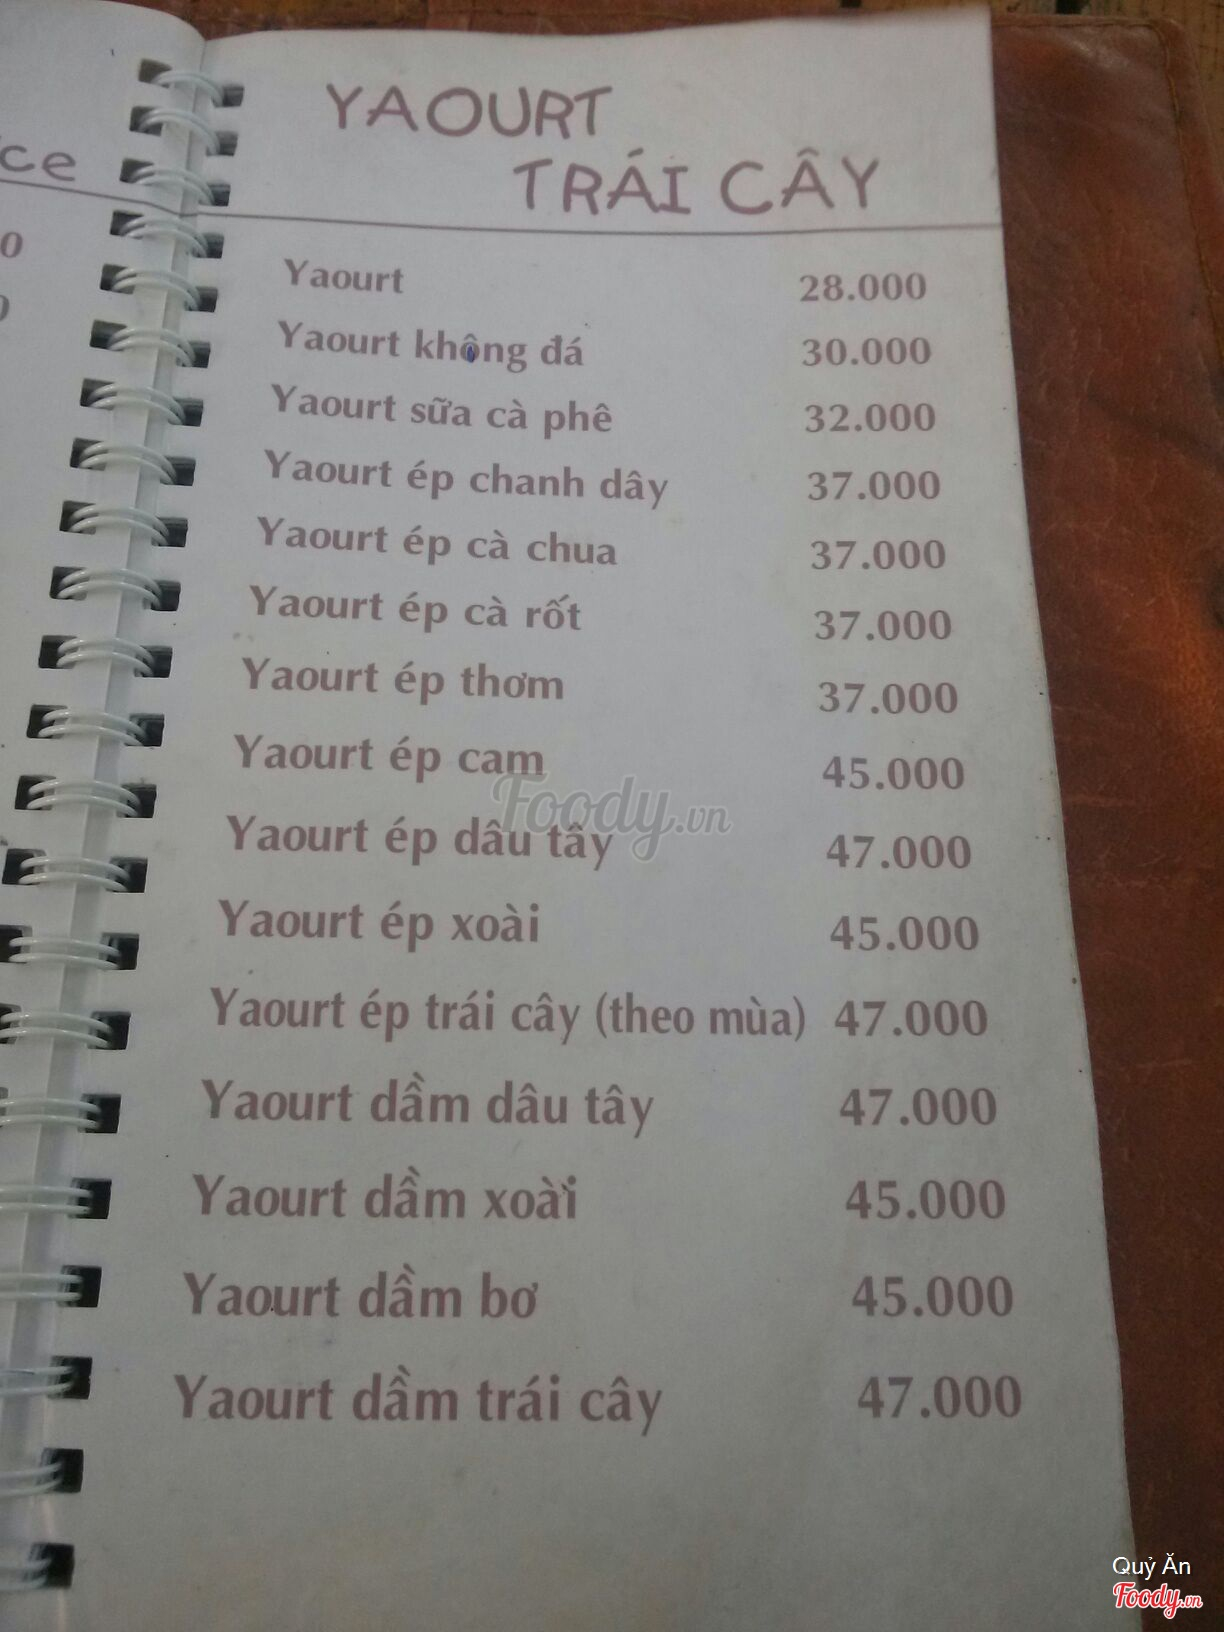 YAOURT
TRÁI CÂY
Yaourt 28.000
Yaourt không đá 30.000
Yaourt sữa cà phê 32.000
Yaourt ép chanh dây 37.000
Yaourt ép cà chua 37.000
Yaourt ép cà rốt 37.000
Yaourt ép thơm 37.000
Yaourt ép cam 45.000
Foody.vn
Yaourt ép dâu tây 47.000
Yaourt ép xoài 45.000
Yaourt ép trái cây (theo mùa) 47.000
Yaourt dầm dâu tây 47.000
Yaourt dầm xoài 45.000
Yaourt dầm bơ 45.000
Yaourt dầm trái cây 47.000
Quỷ Ăn
Foody.vn